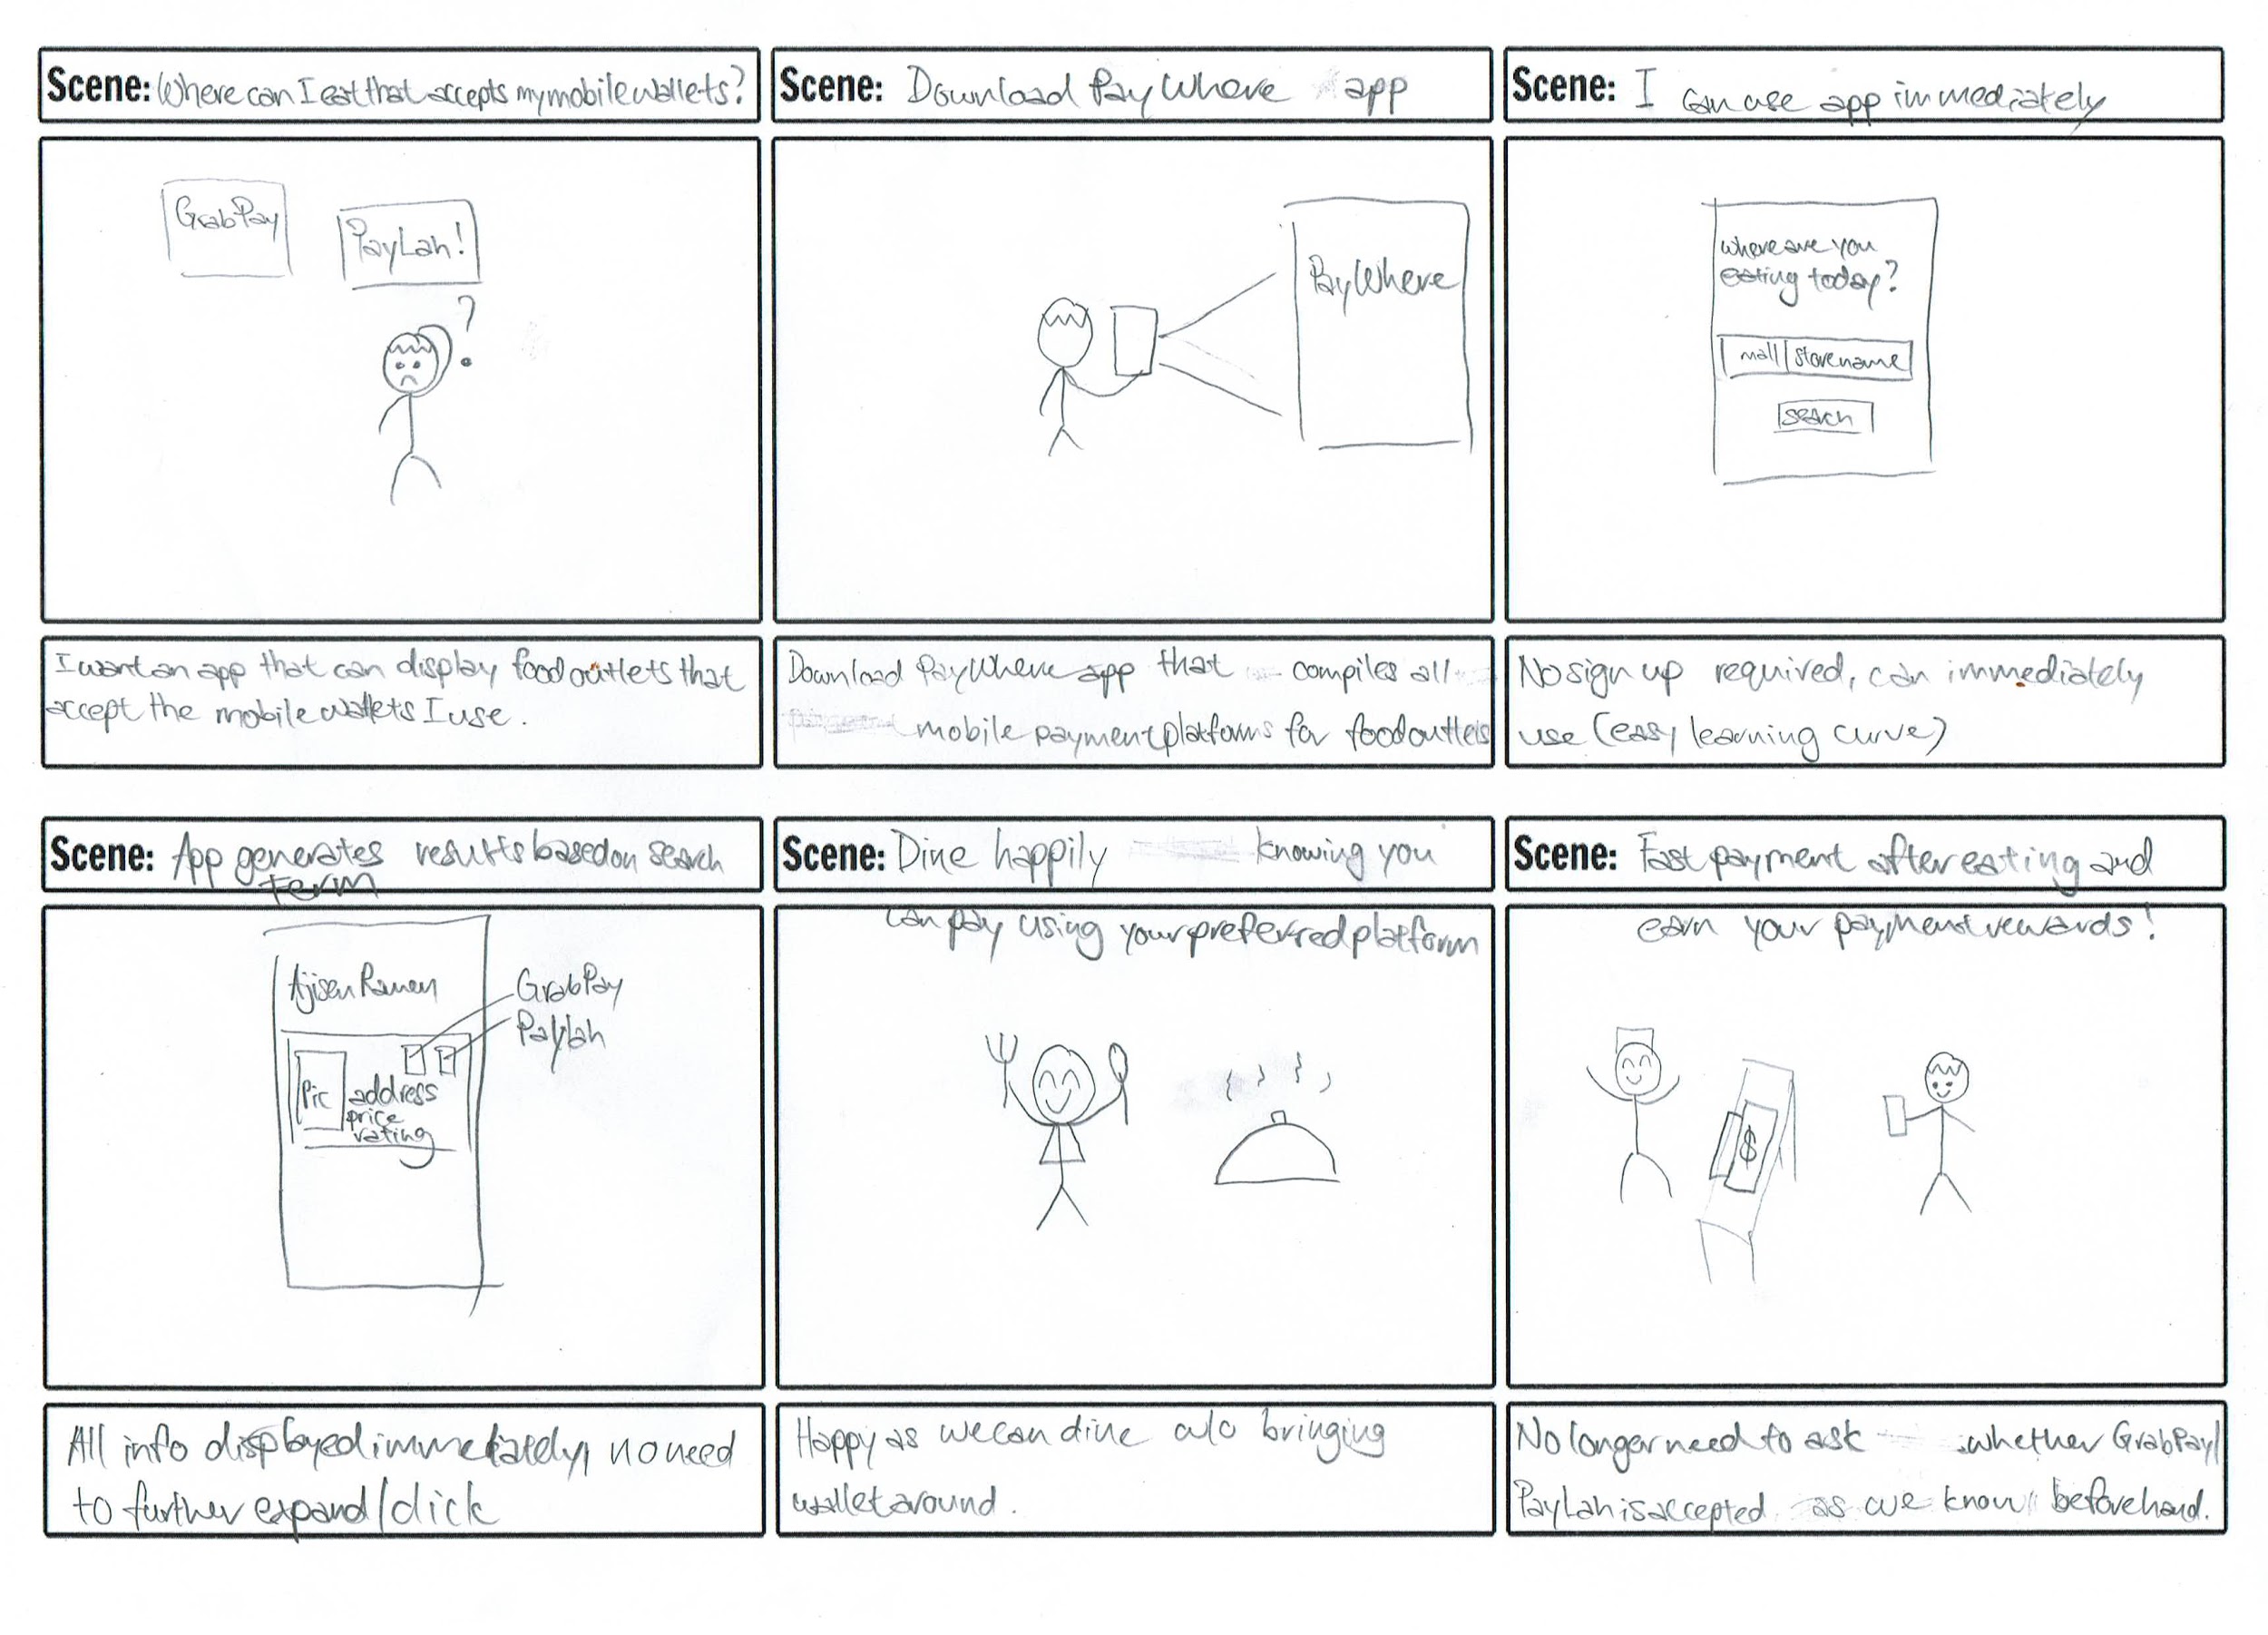 Scene: Where can I eat that accepts my mobile wallets?
GrabPay
PayLah!
?
I want an app that can display food outlets that
accept the mobile wallets I use.
Scene: Download PayWhere app
PayWhere
Download PayWhere app that compiles all
mobile payment platforms for food outlets
Scene: I can use app immediately
where are you
eating today?
mall store name
search
No sign up required, can immediately
use (easy learning curve)
Scene: App generates results based on search
term
Ajisen Ramen
GrabPay
Paylah
Pic address
price
rating
All info displayed immediately, no need
to further expand/click
Scene: Dine happily knowing you
can pay using your preferred platform
Happy as we can dine w/o bringing
wallet around.
Scene: Fast payment after eating and
earn your payment rewards!
$
No longer need to ask whether GrabPay/
PayLah is accepted as we know beforehand.